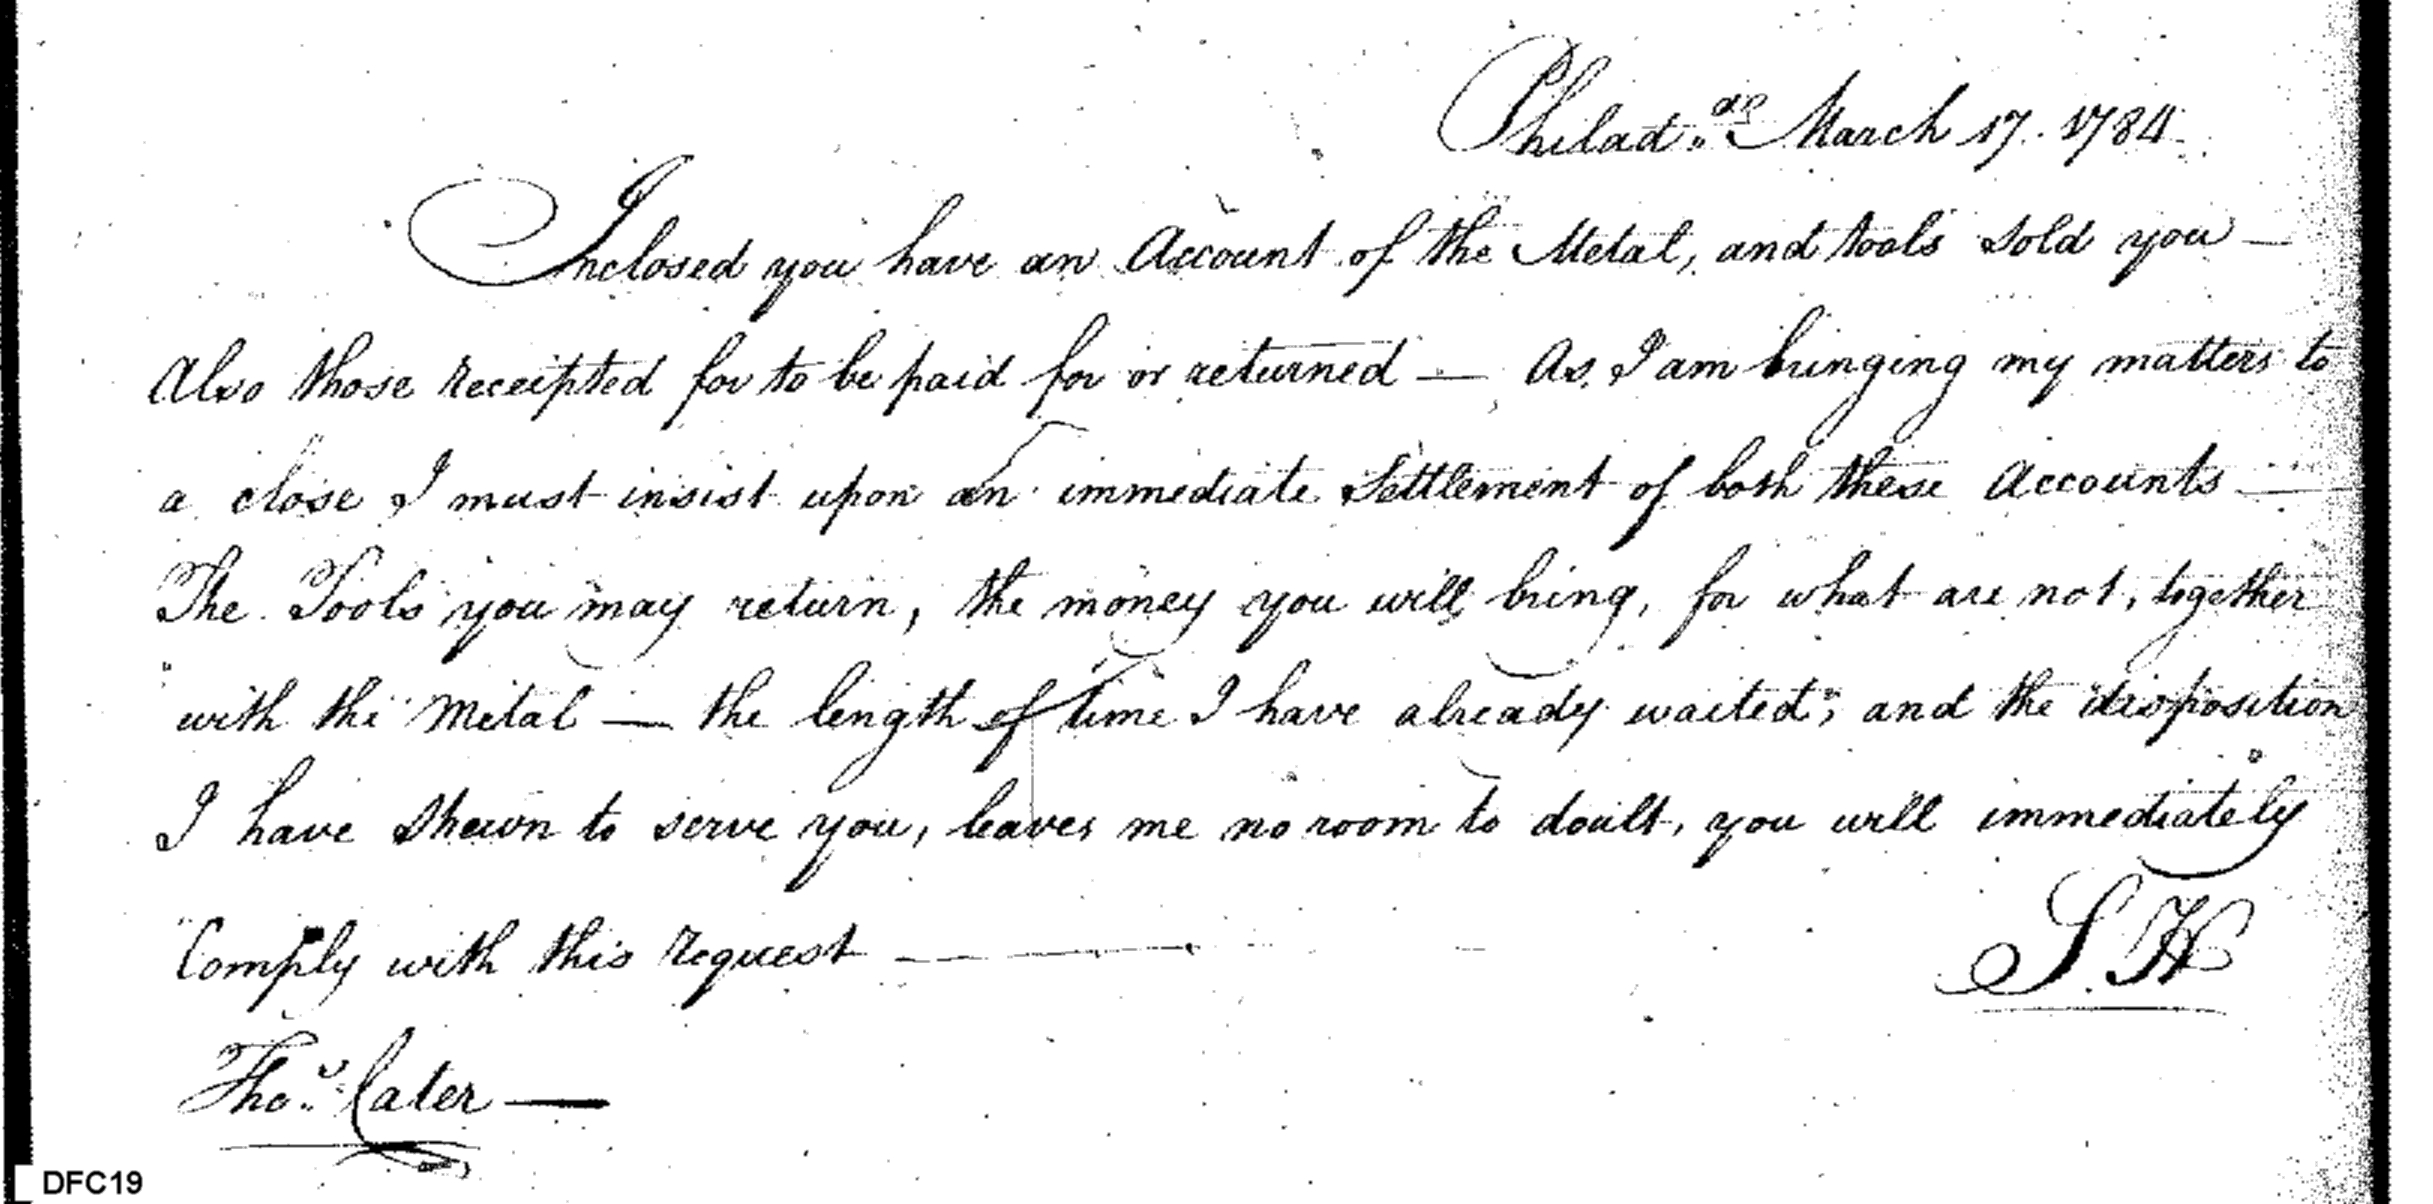 Philad.ª March 17. 1784
Inclosed you have an Account of the Metal, and tools sold you —
Also those receipted for to be paid for or returned — As I am bringing my matters to
a close I must insist upon an immediate Settlement of both these Accounts —
The Tools you may return, the money you will bring, for what are not, together
with the Metal — the length of time I have already waited, and the disposition
I have shewn to serve you, leaves me no room to doubt, you will immediately
Comply with this request —
S. H
Tho.s Cater —
DFC19